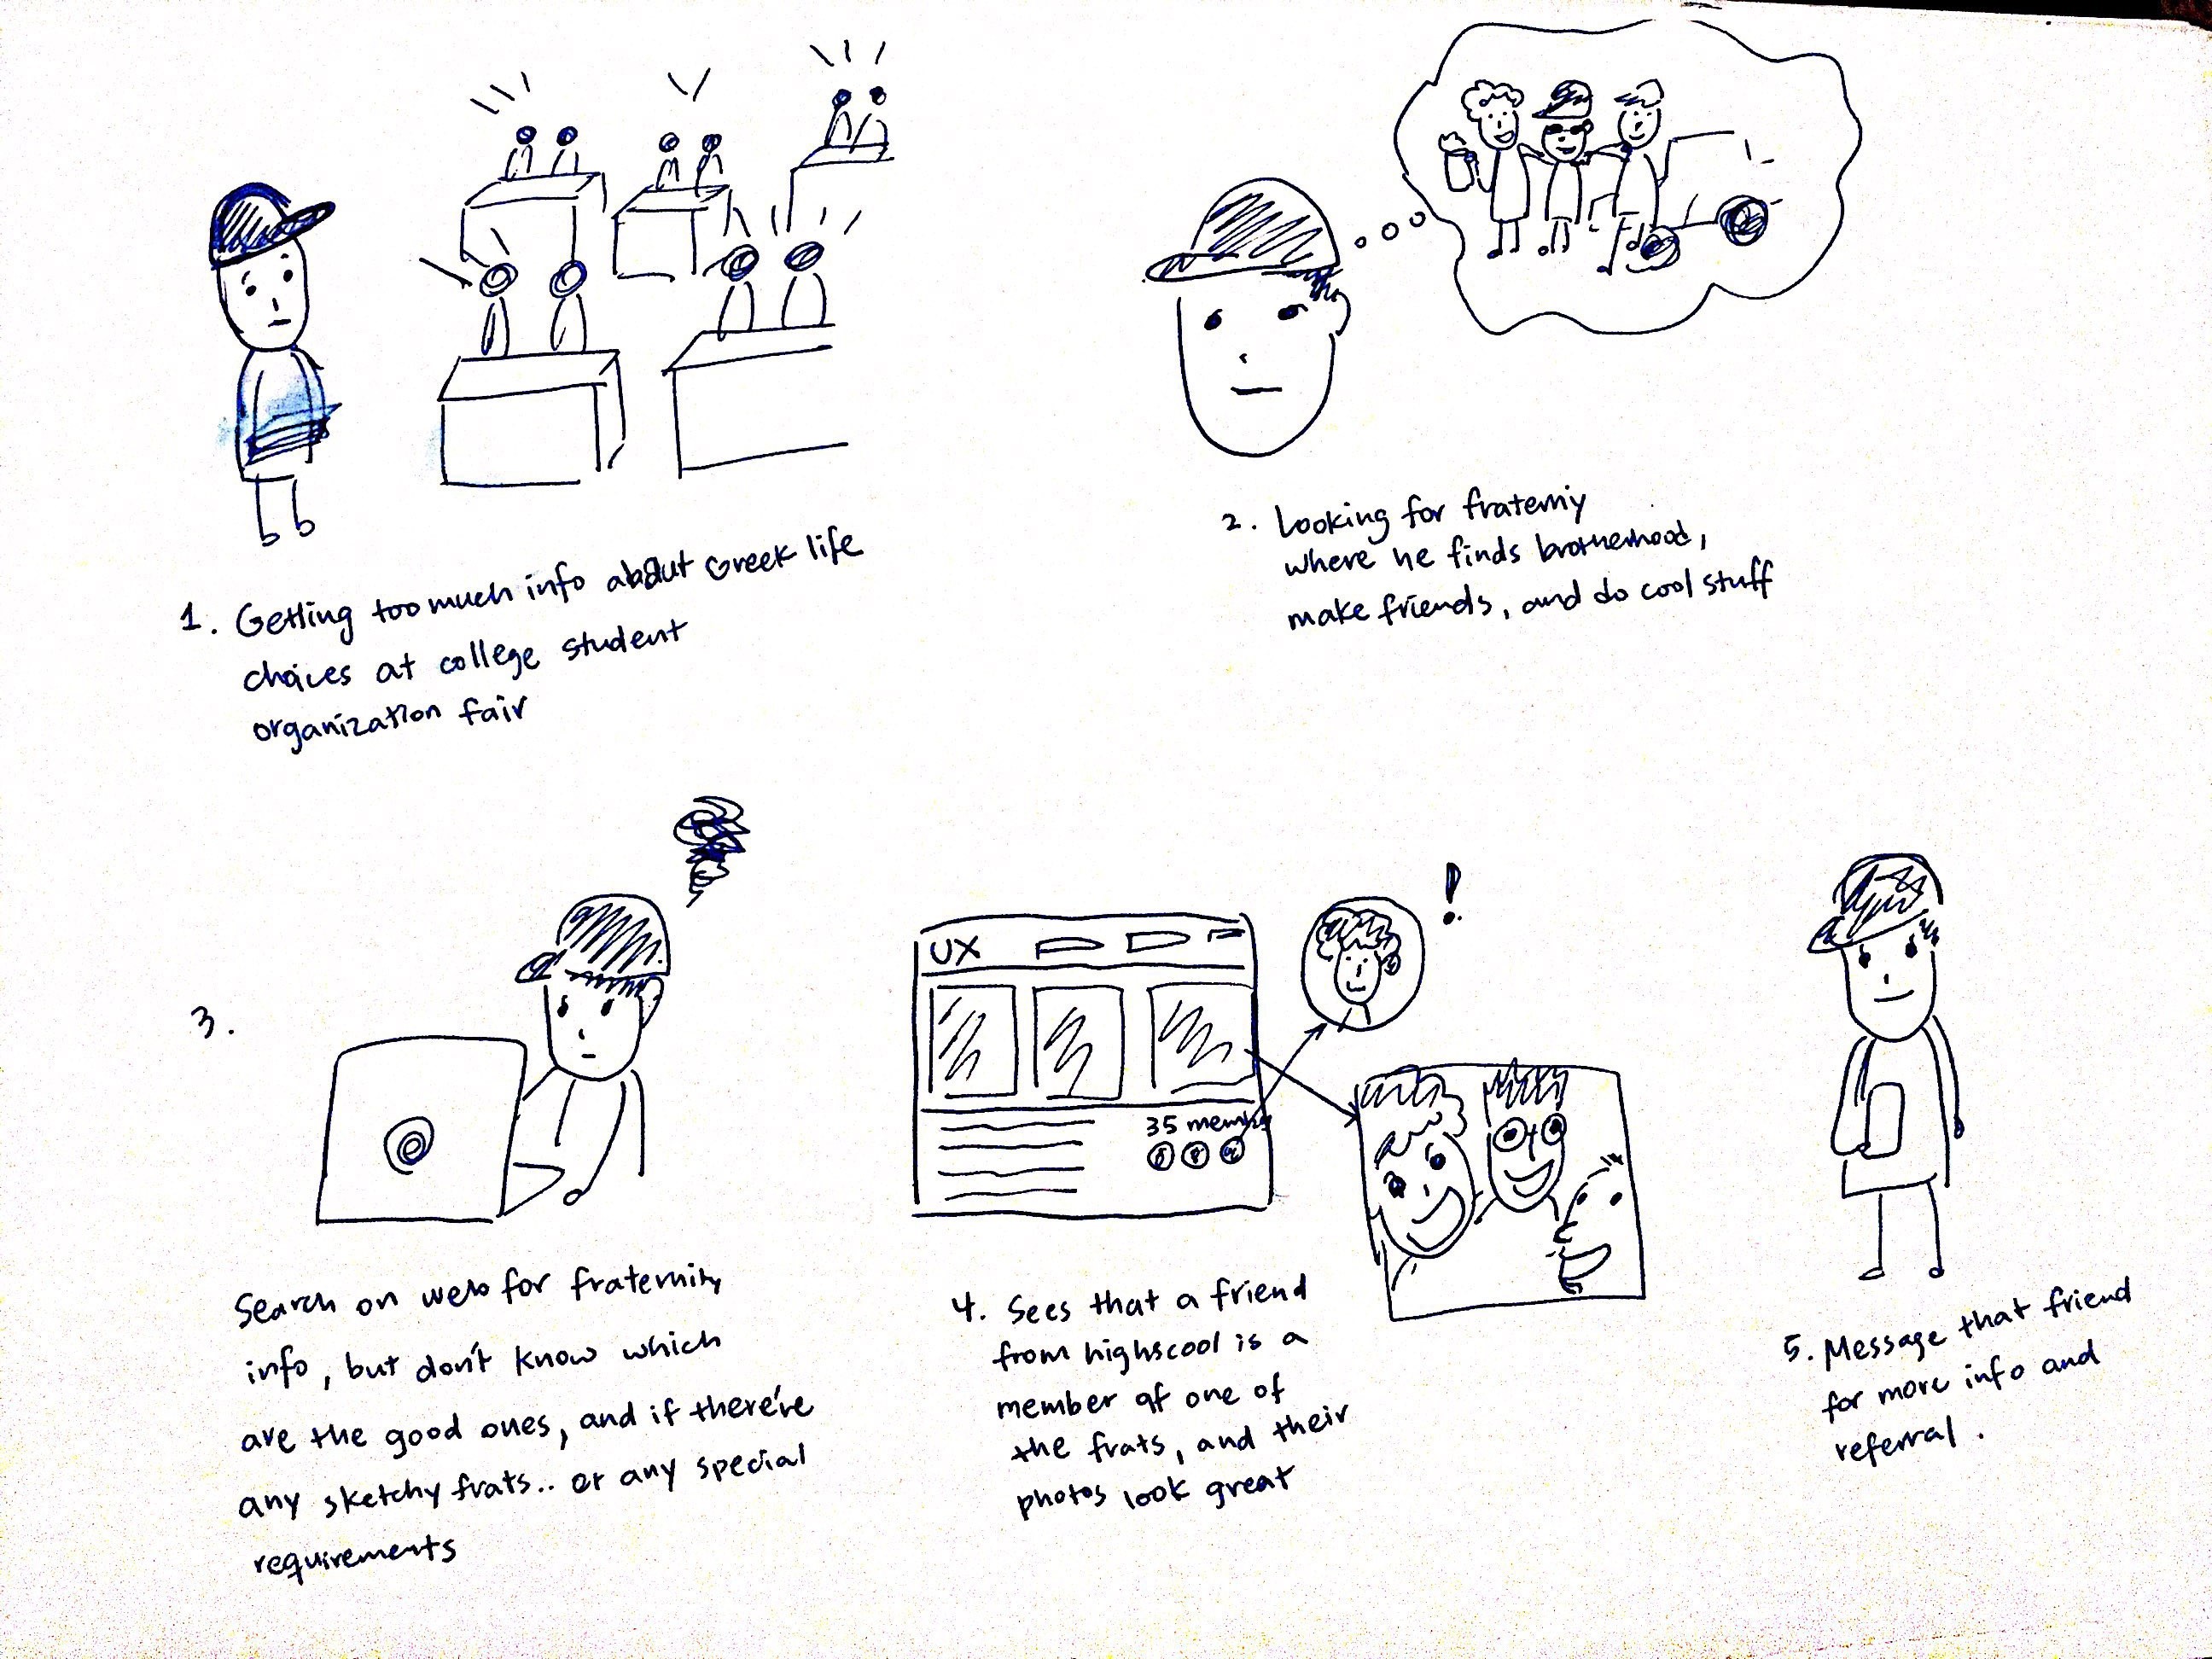 1. Getting too much info about Greek life
choices at college student
organization fair
2. Looking for fraterniy
where he finds brotherhood,
make friends, and do cool stuff
3.
Search on web for fraternity
info, but don't know which
are the good ones, and if there're
any sketchy frats.. or any special
requirements
UX
35 members
4. Sees that a friend
from highscool is a
member of one of
the frats, and their
photos look great
5. Message that friend
for more info and
referral.